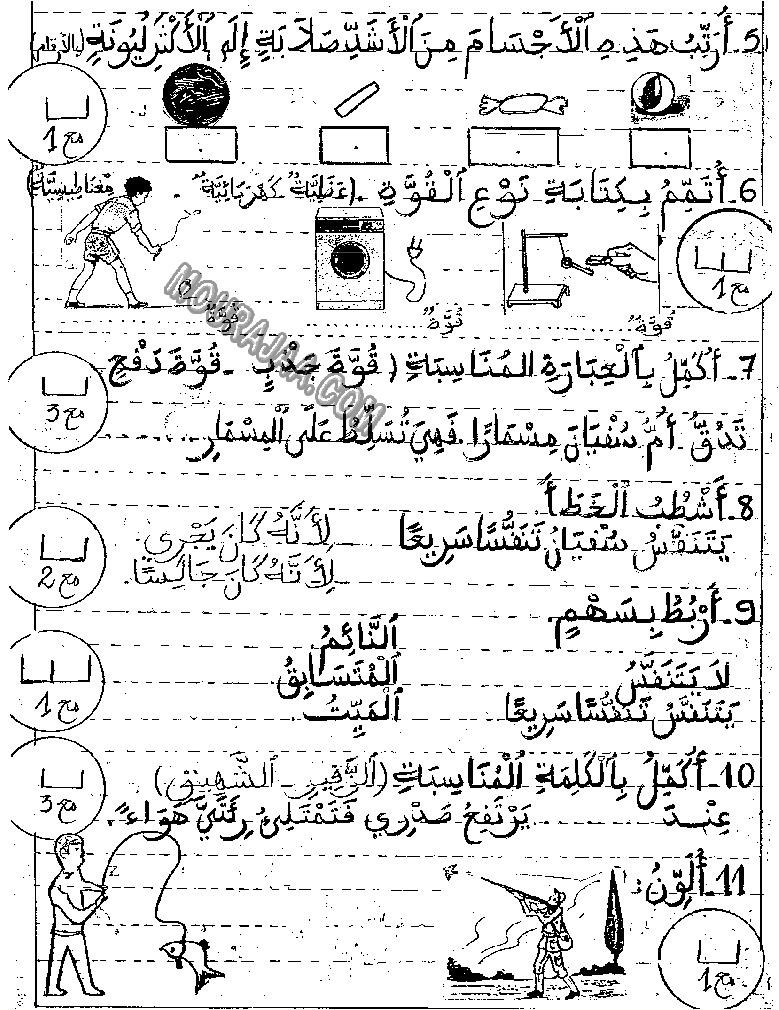 5. أُرَتِّبُ هَذِهِ الْأَجْسَامَ مِنَ الْأَشَدِّ صَلَابَةٍ إِلَى الْأَكْثَرِ لُيُونَةٍ (بالأرقام)
مع 1
6. أُتَمِّمُ بِكِتَابَةِ نَوْعِ الْقُوَّةِ. (عَضَلِيَّةٌ كَهْرَبَائِيَّةٌ. مِغْنَاطِيسِيَّةٌ)
مع 1
قُوَّةٌ ........ قُوَّةٌ ........ قُوَّةٌ
MOURAJAA.COM
7. أُكَمِّلُ بِالْعِبَارَةِ الْمُنَاسِبَةِ (قُوَّةَ جَذْبٍ - قُوَّةَ دَفْعٍ
تَدُقُّ أُمُّ سُفْيَانَ مِسْمَارًا. فَهِيَ تُسَلِّطُ عَلَى الْمِسْمَارِ ........
مع 3
8. أَشْطُبُ الْخَطَأَ
يَتَنَفَّسُ سُفْيَانُ تَنَفُّسًا سَرِيعًا لِأَنَّهُ كَانَ يَجْرِي.
لِأَنَّهُ كَانَ جَالِسًا.
مع 2
9. أَرْبُطُ بِسَهْمٍ.
النَّائِمُ.
لَا يَتَنَفَّسُ الْمُتَسَابِقُ
يَتَنَفَّسُ تَنَفُّسًا سَرِيعًا الْمَيِّتُ
مع 1
10. أُكَمِّلُ بِالْكَلِمَةِ الْمُنَاسِبَةِ (الزَّفِيرِ - الشَّهِيقِ)
عِنْدَ ........ يَرْتَفِعُ صَدْرِي فَتَمْتَلِئُ رِئَتَيَّ هَوَاءً.
مع 3
11. أُلَوِّنُ:
مع 1